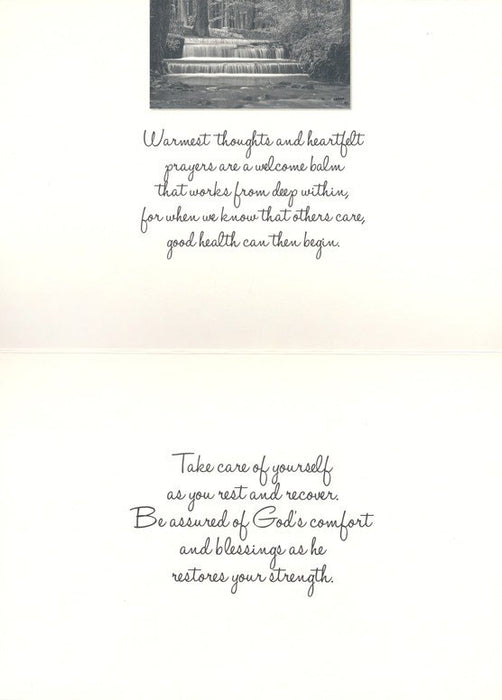 Warmest thoughts and heartfelt
prayers are a welcome balm
that works from deep within,
for when we know that others care,
good health can then begin.
Take care of yourself
as you rest and recover.
Be assured of God's comfort
and blessings as he
restores your strength.